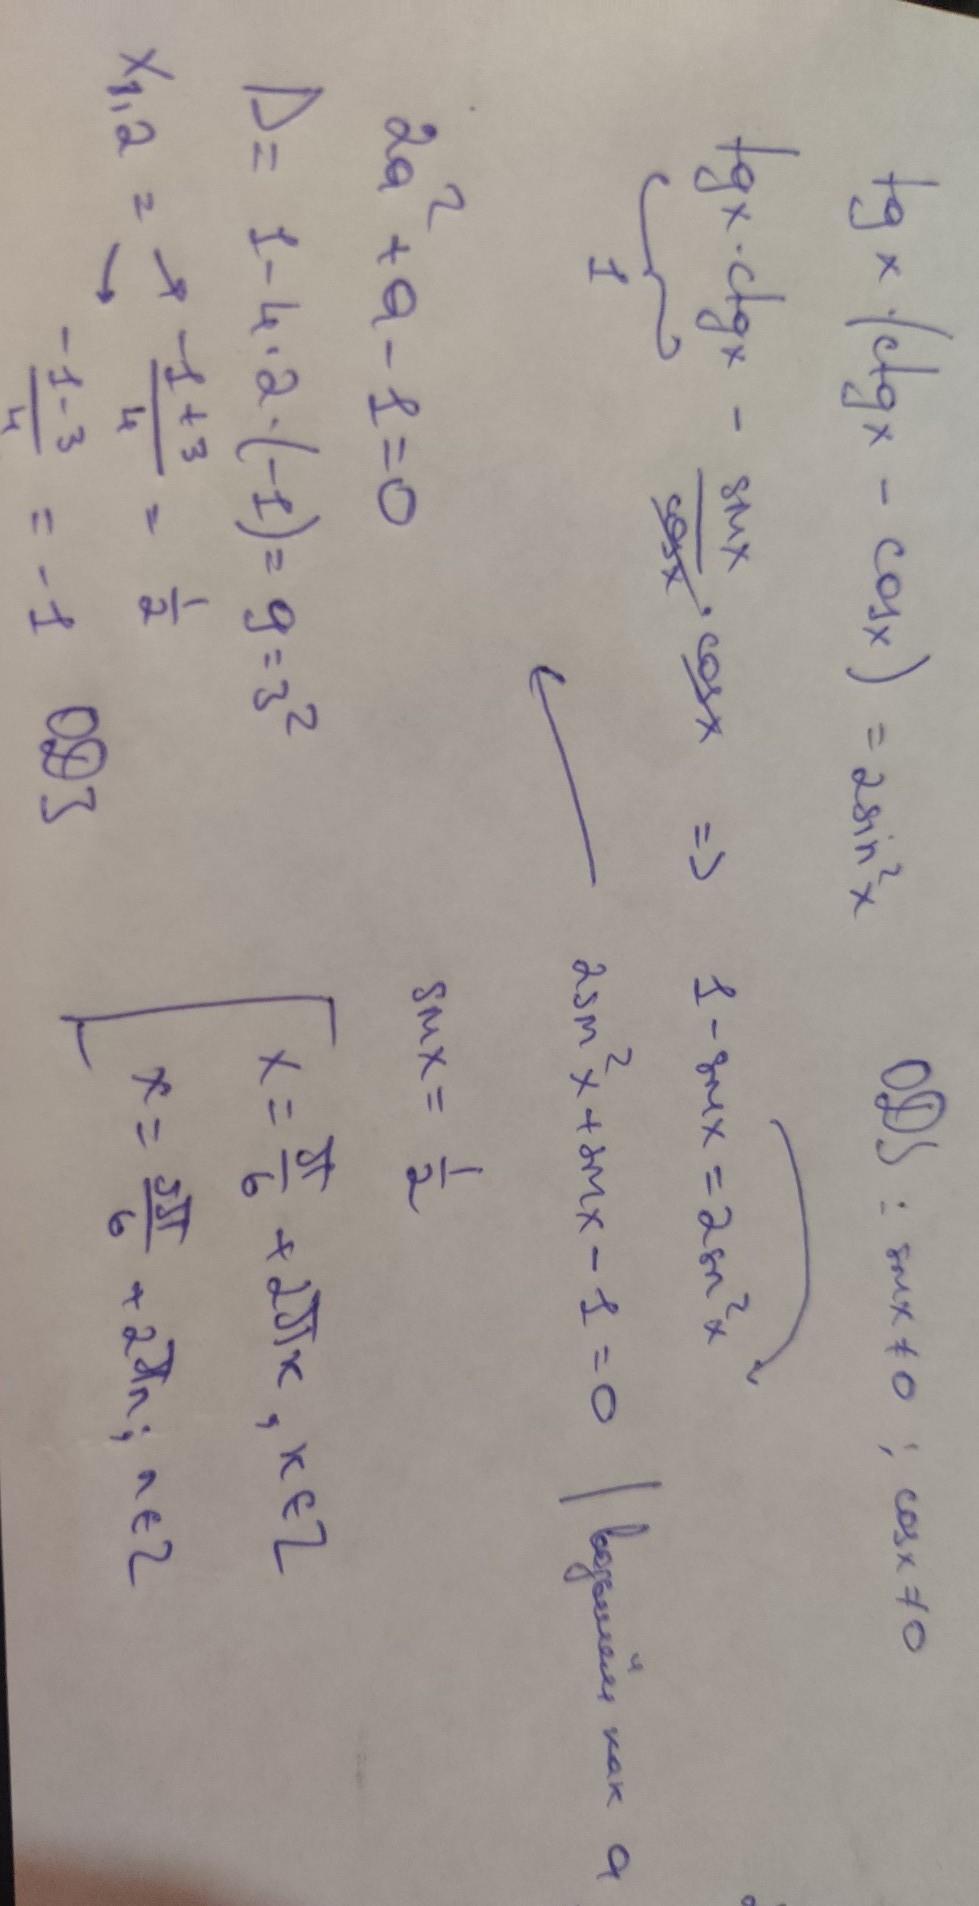 tg x · (ctgx - cosx) = 2sin²x ОДЗ : sinx ≠ 0 ; cosx ≠ 0
tgx · ctgx - sinx/cosx · cosx => 1 - sinx = 2sin²x
1
2sin²x + sinx - 1 = 0 | возьмем как a
2a² + a - 1 = 0
D = 1 - 4 · 2 · (-1) = 9 = 3²
x1,2 = → -1+3/4 = 1/2
→ -1-3/4 = -1 ОДЗ
sinx = 1/2
x = π/6 + 2πk, k ∈ Z
x = 5π/6 + 2πn; n ∈ Z